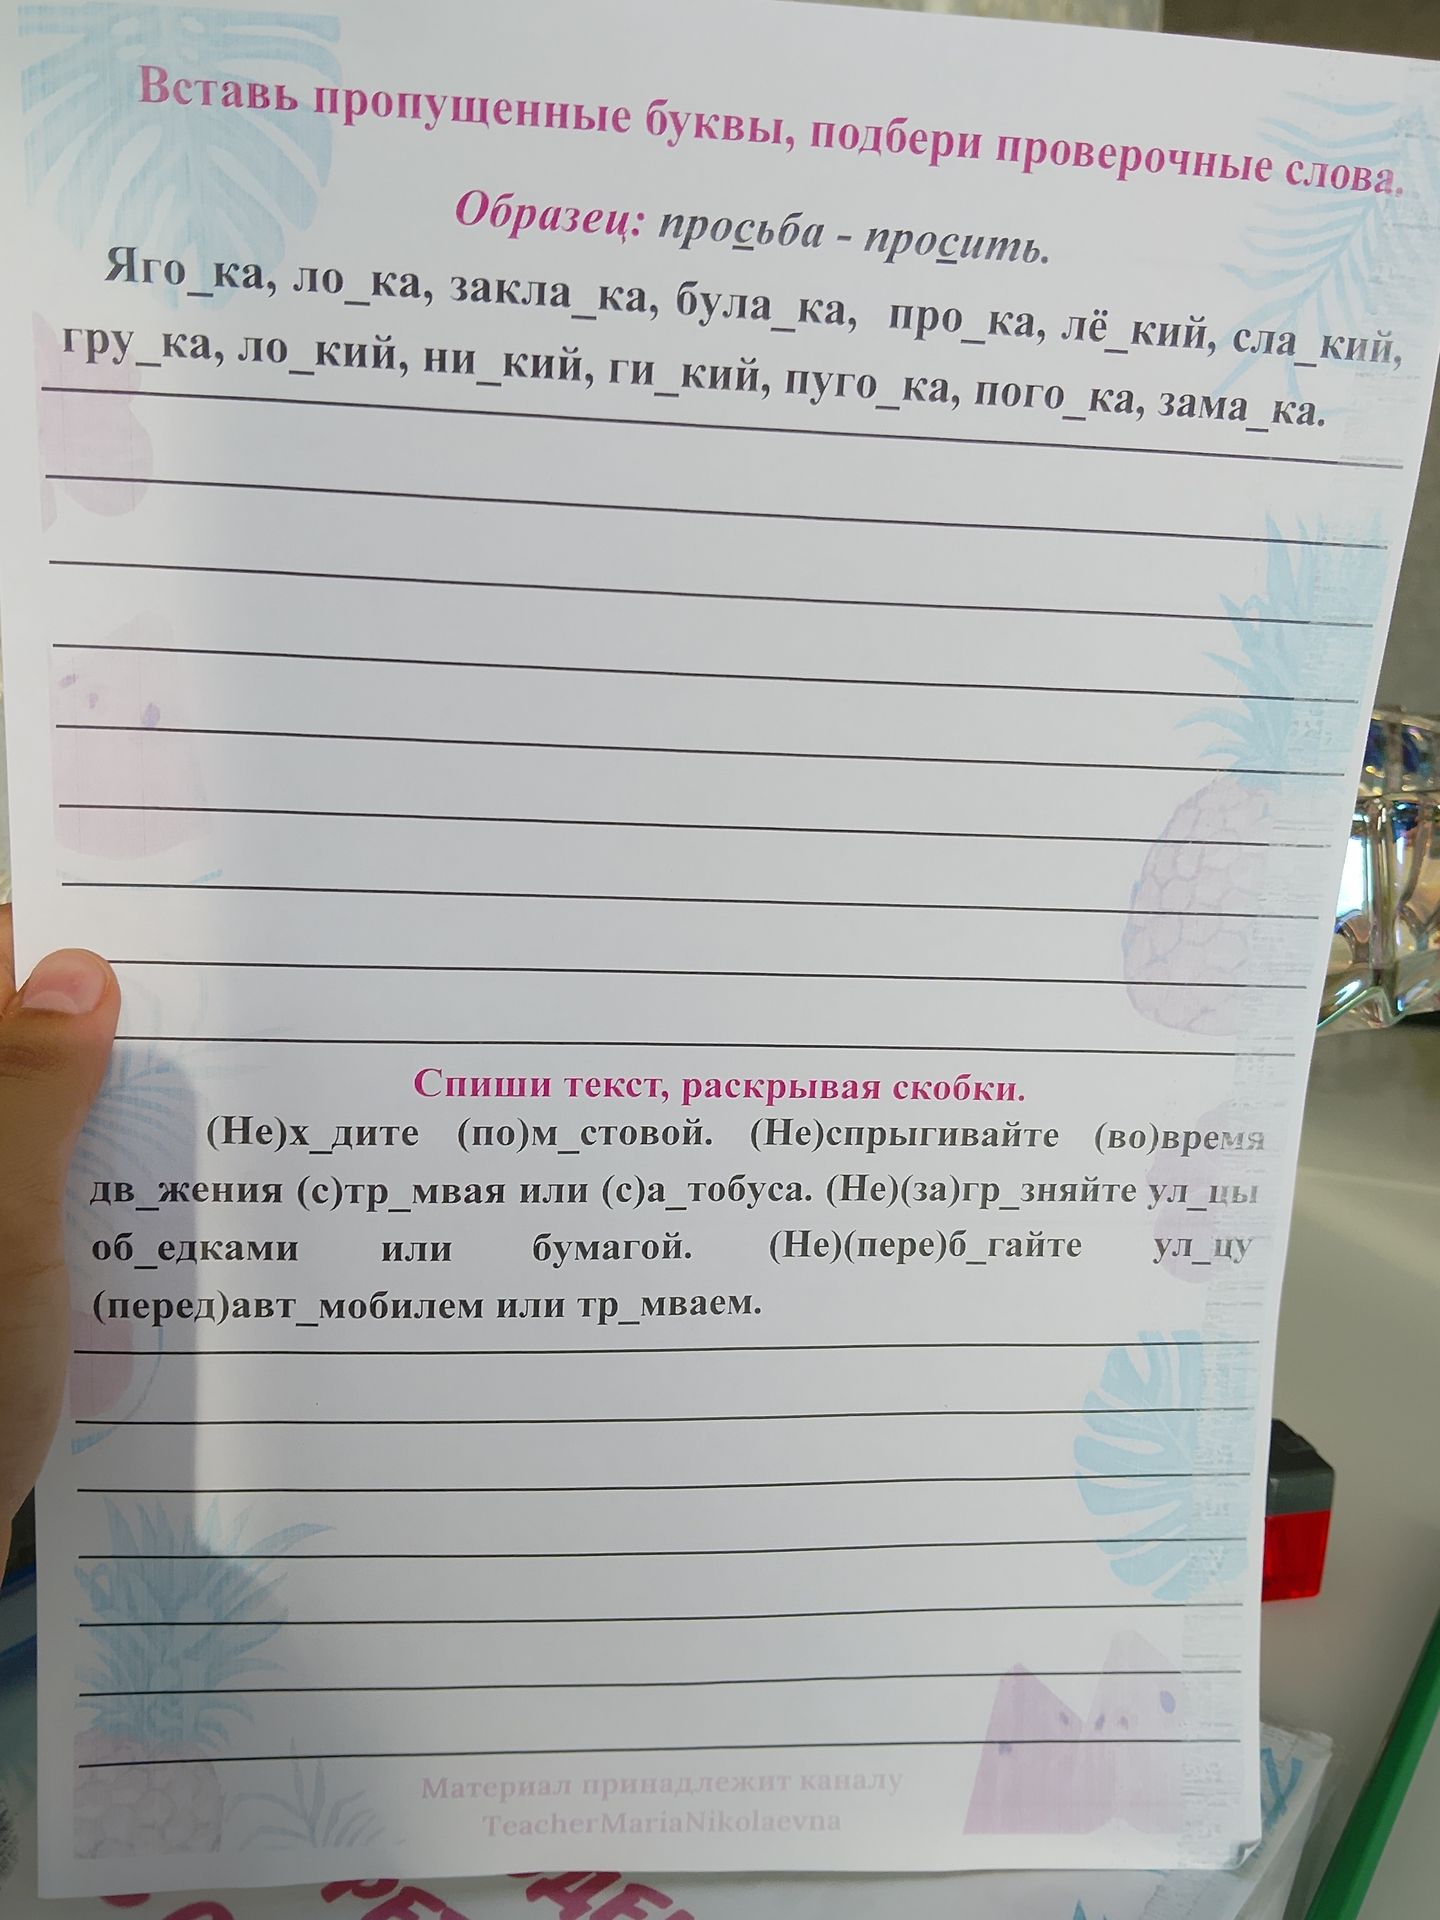 Вставь пропущенные буквы, подбери проверочные слова.
Образец: просьба - просить.
Яго_ка, ло_ка, закла_ка, була_ка, про_ка, лё_кий, сла_кий,
гру_ка, ло_кий, ни_кий, ги_кий, пуго_ка, пого_ка, зама_ка.
Спиши текст, раскрывая скобки.
(Не)х_дите (по)м_стовой. (Не)спрыгивайте (во)время
дв_жения (с)тр_мвая или (с)а_тобуса. (Не)(за)гр_зняйте ул_цы
об_едками или бумагой. (Не)(пере)б_гайте ул_цу
(перед)авт_мобилем или тр_мваем.
Материал принадлежит каналу
TeacherMariaNikolaevna